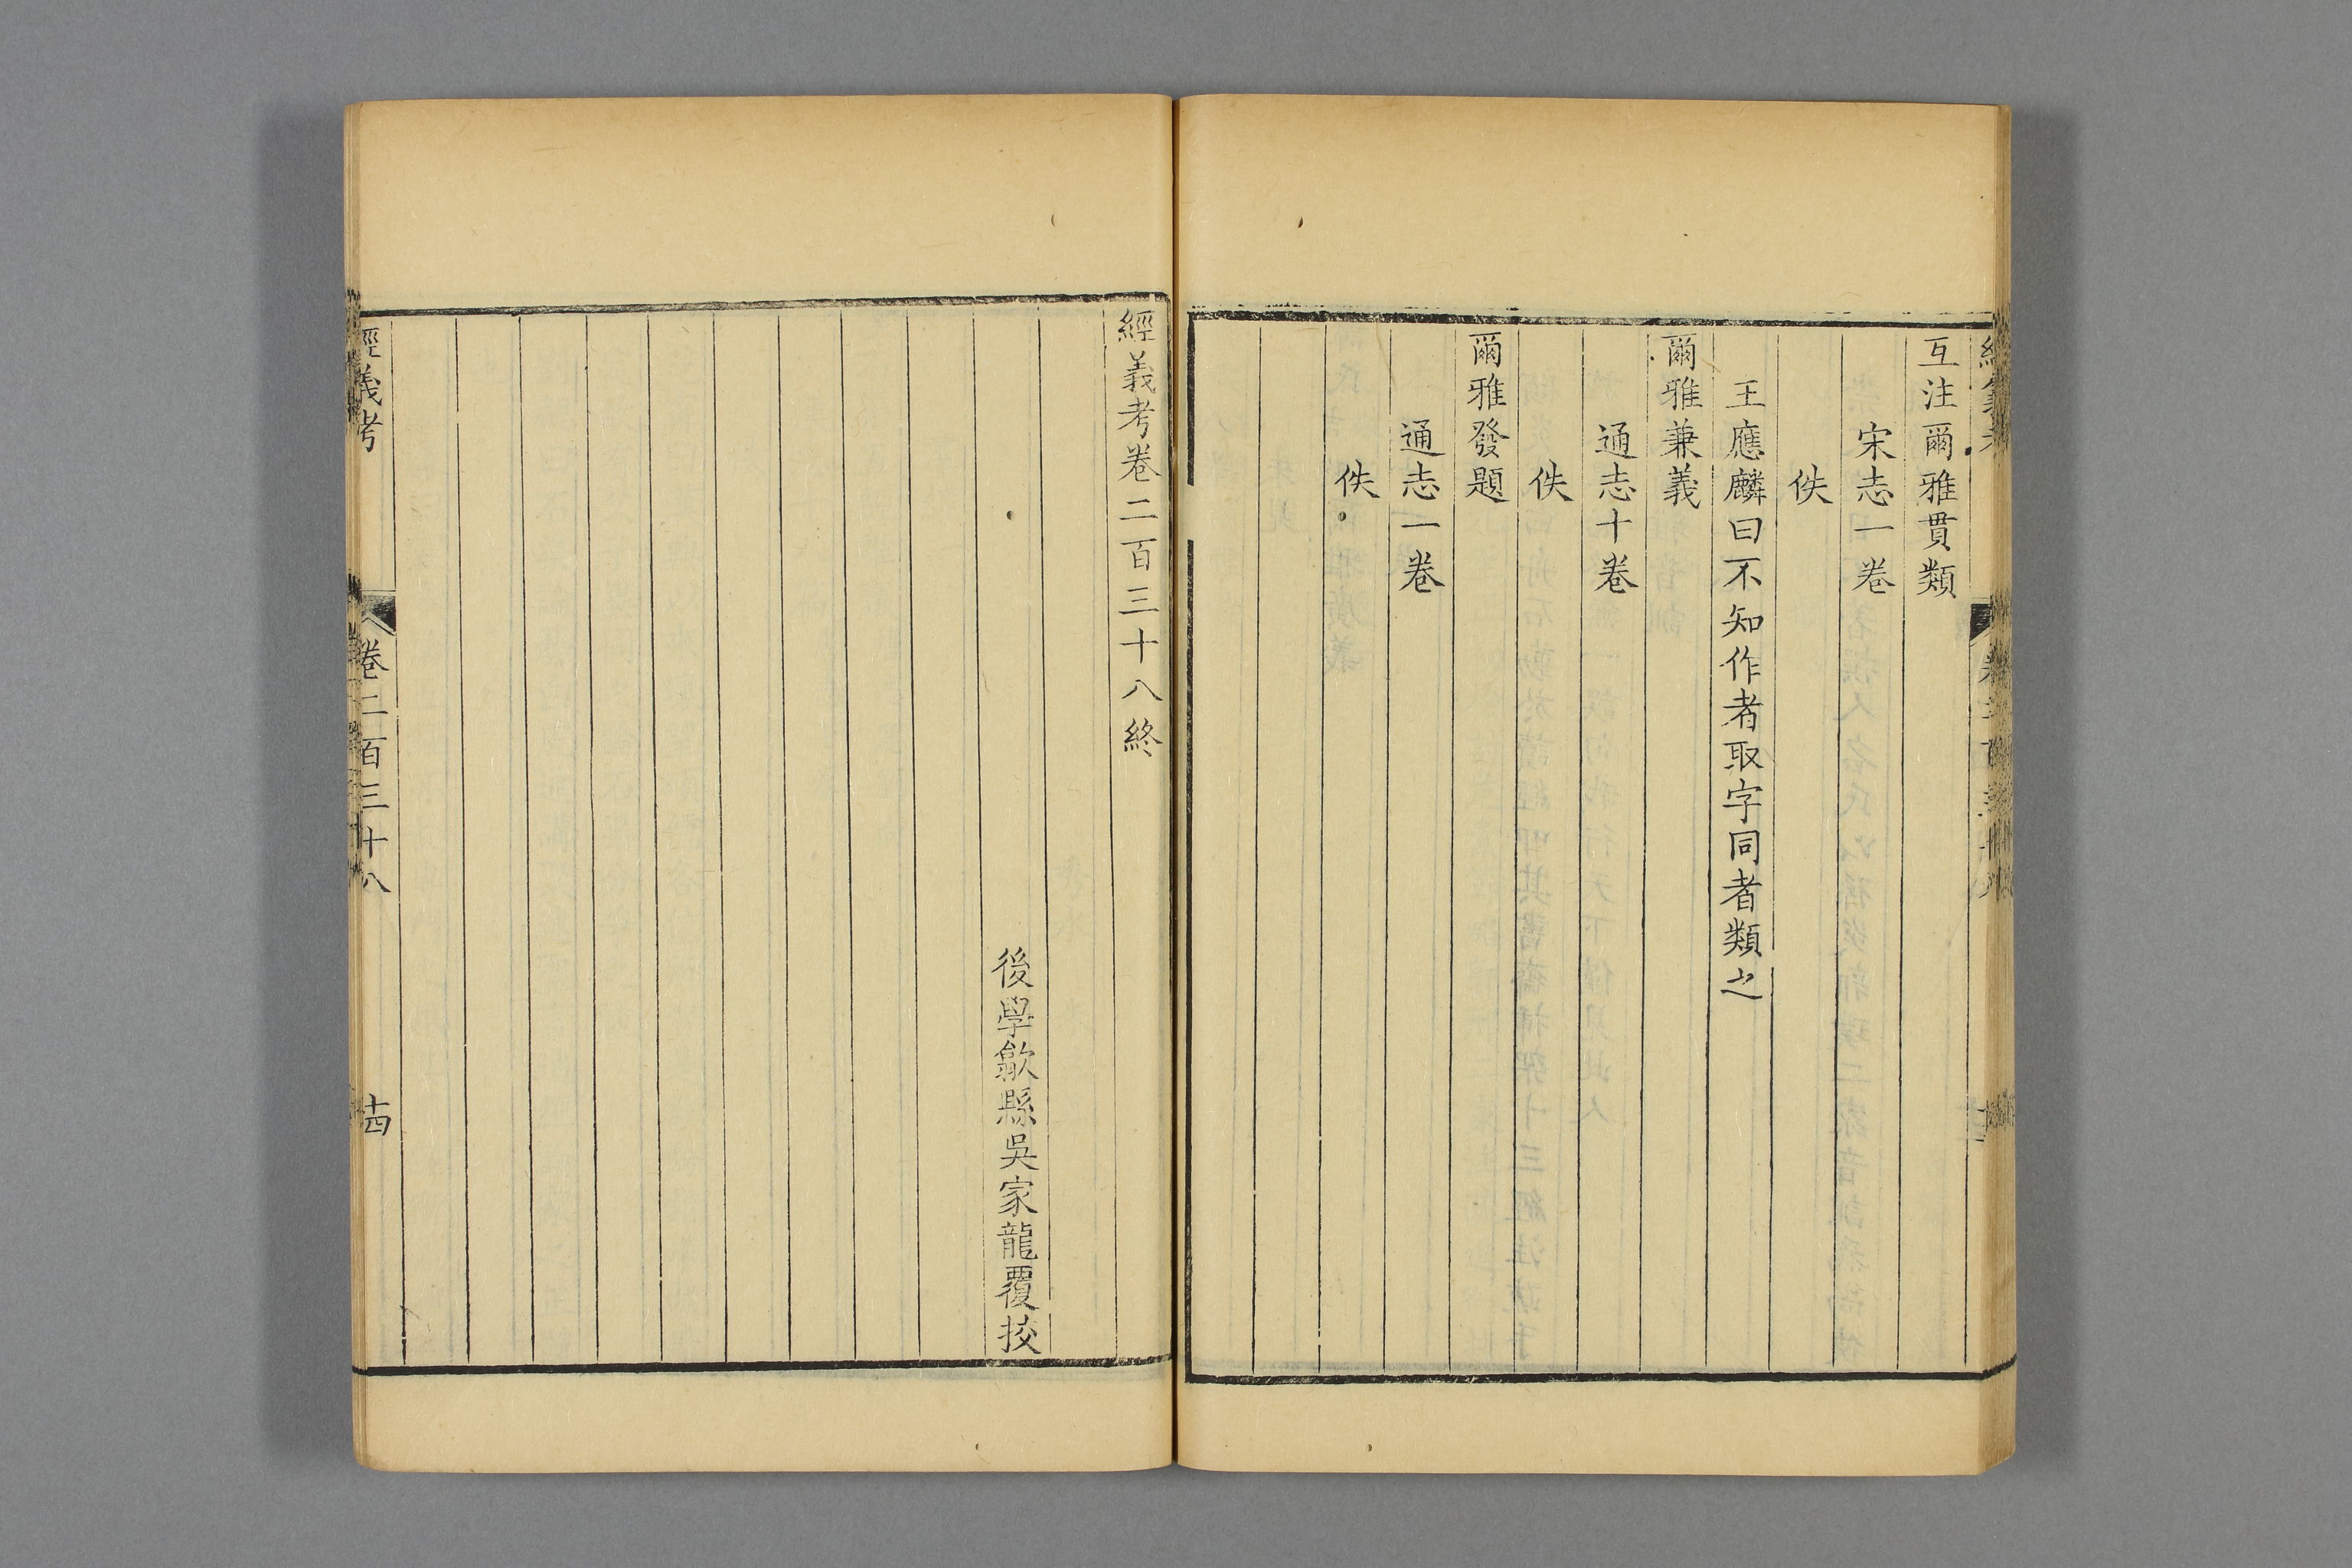 互注爾雅貫類
宋志一卷
佚
王應麟曰不知作者取字同者類之
爾雅兼義
通志十卷
佚
爾雅發題
通志一卷
佚
經義考卷二百三十八終
後學歙縣吳家龍覆挍
經義考
卷二百三十八
十四